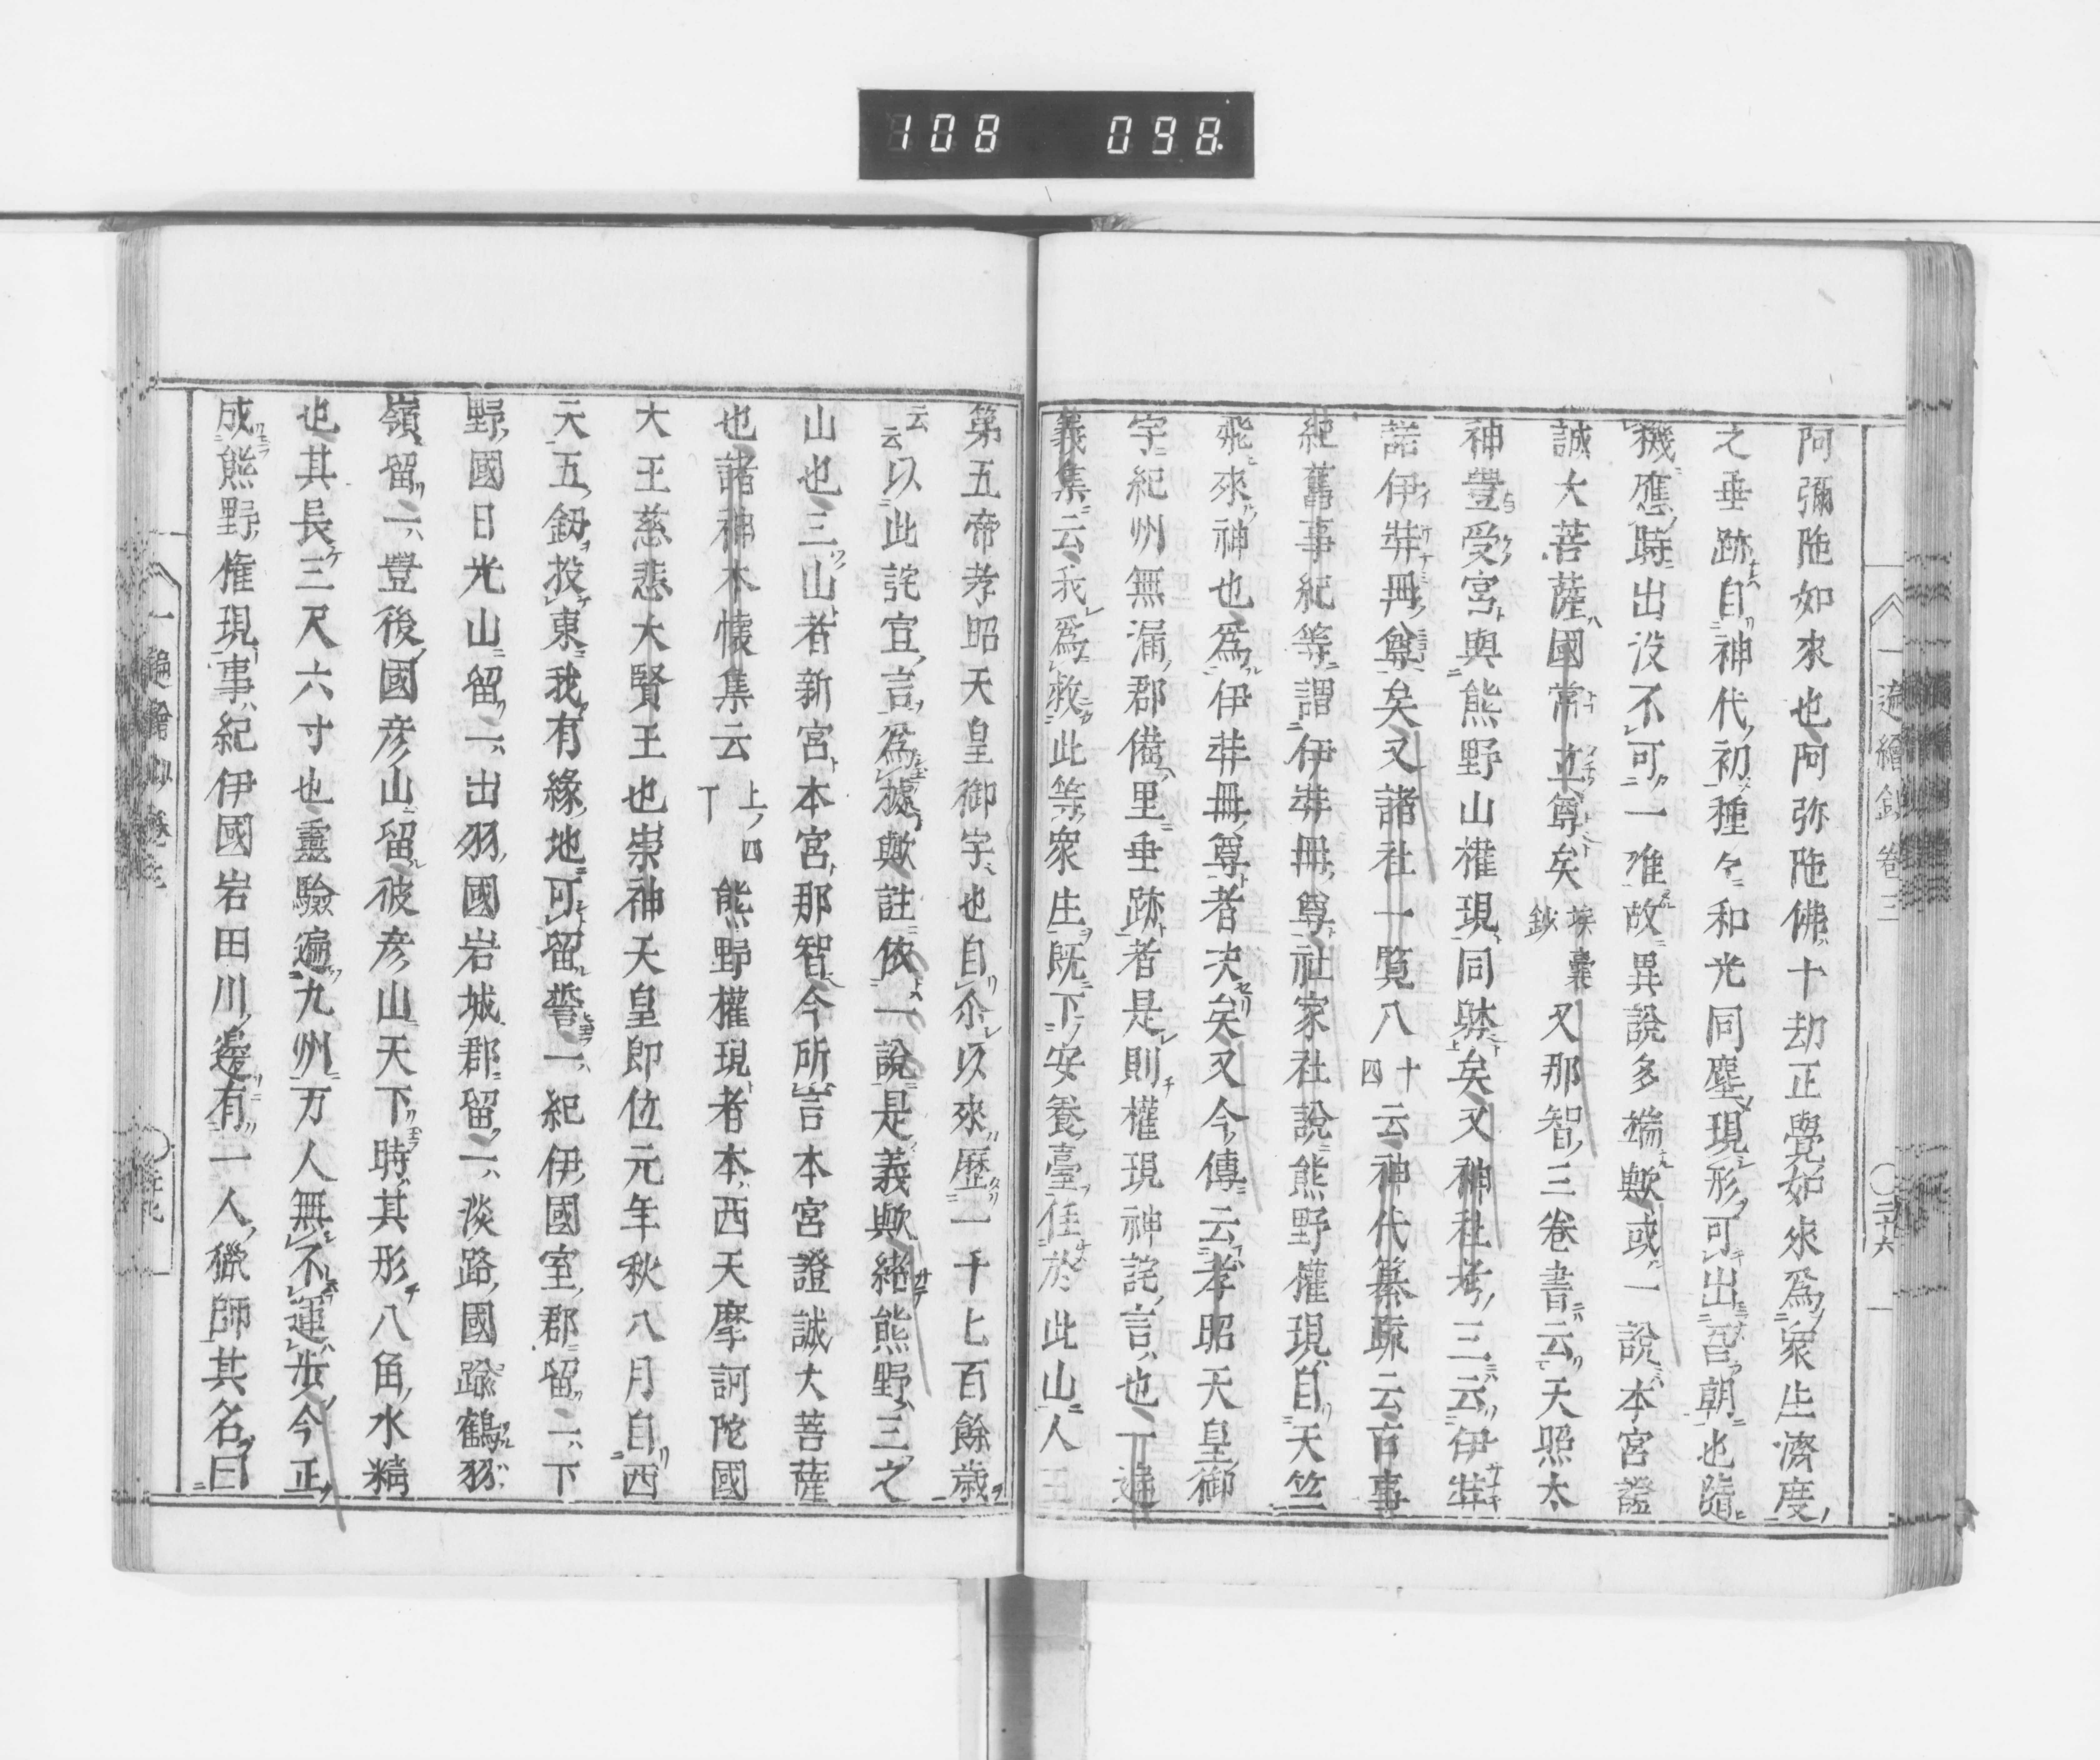 108 098
一遍繪鈔卷三
二十六
阿彌陁如來也阿弥陁佛十劫正覺如來爲衆生濟度
之垂跡自神代初種々和光同塵現形可出吾朝也隨
機應時出没不可一准故異說多端歟或一說本宮證
誠大菩薩國常立尊矣埃囊鈔又那智三卷書云天照太
神豐受宮與熊野山權現同躰矣又神社考三云伊弉
諾伊弉冊尊矣又諸社一覧八十四云神代纂疏云古事
紀舊事紀等謂伊弉冊尊社家社說熊野權現自天竺
飛來神也爲伊弉冊尊者决矣又今傳云孝昭天皇御
宇紀州無漏郡備里垂跡者是則權現神詫言也一遍
義集云我爲救此等衆生既下安養臺住於此山人王
第五帝孝昭天皇御宇也自尒以來歷一千七百餘歳
云云以此詫宣言爲據歟註依一說是義歟紹熊野三之
山也三山者新宮本宮那智今所言本宮證誠大菩薩
也諸神本懷集云上四丁熊野權現者本西天摩訶陀國
大王慈悲大賢王也崇神天皇即位元年秋八月自西
天五釼投東我有緣地可留誓一紀伊國室郡留二下
野國日光山留一出羽國岩城郡留一淡路國踰鶴羽
嶺留一豐後國彦山留彼彦山天下時其形八角水精
也其長三尺六寸也靈驗遍九州万人無不運步今正
成熊野権現事紀伊國岩田川邊有一人獵師其名曰
一遍繪鈔卷三